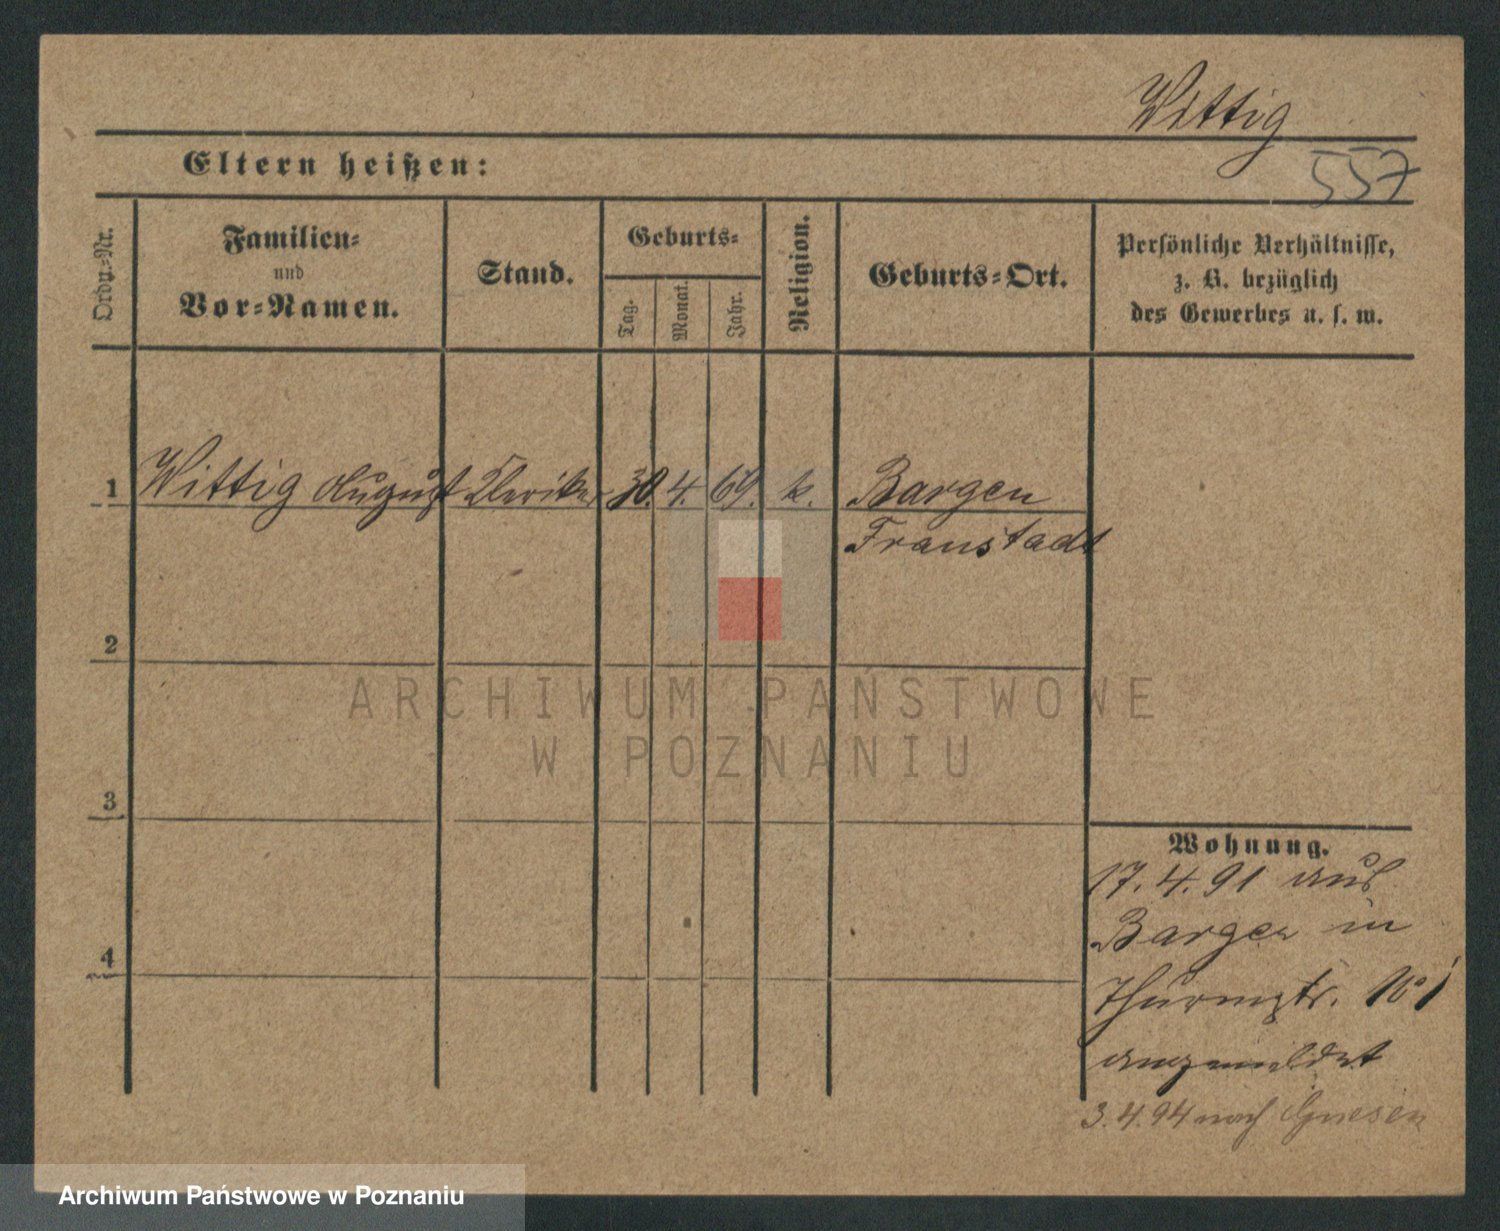 Wittig
Eltern heißen:
557
Ordn.-Nr.
Familien-
und
Vor-Namen.
Stand.
Geburts-
Tag.
Monat.
Jahr.
Religion.
Geburts-Ort.
Persönliche Verhältnisse,
z. B. bezüglich
des Gewerbes u. s. w.
1 Wittig August Kleriker 30. 4. 69. k. Bargen
Fraustadt
2
3
4
Wohnung.
17. 4. 91 aus
Bargen in
Thurmstr.
angemeldet
3. 4. 94 nach Gnesen
ARCHIWUM PAŃSTWOWE
W POZNANIU
Archiwum Państwowe w Poznaniu